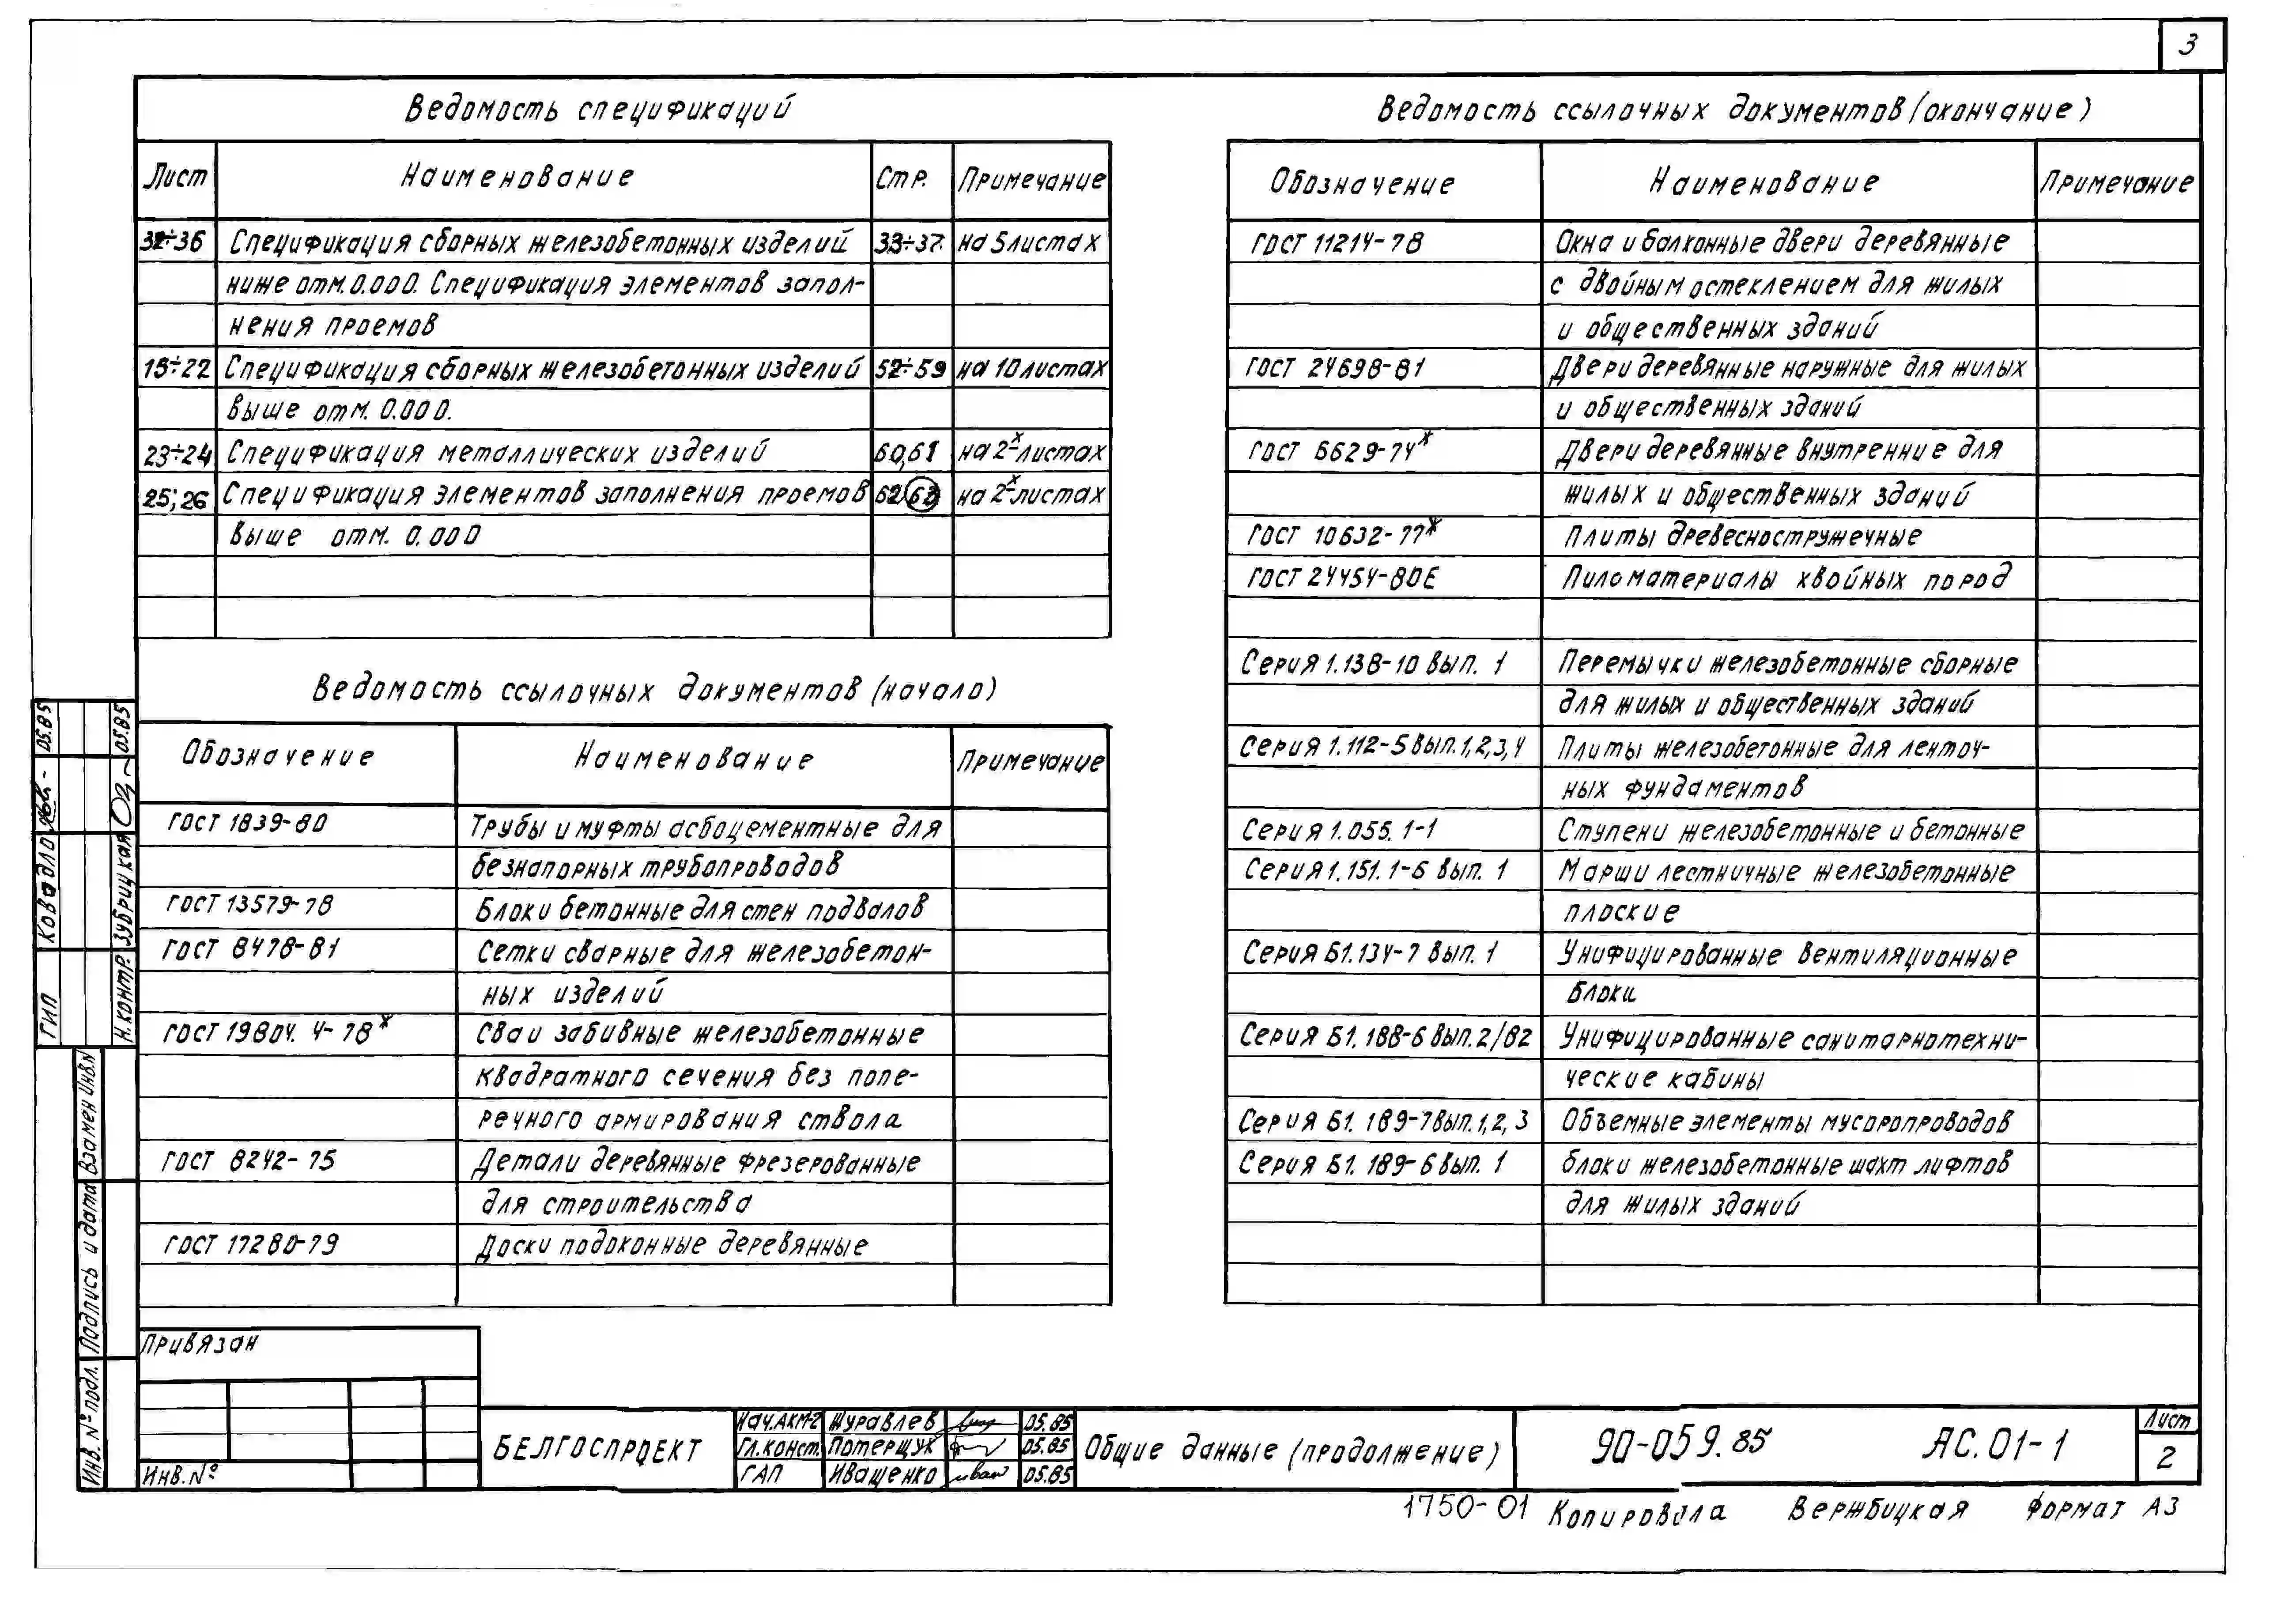 3
Ведомость спецификаций
Лист Наименование Стр. Примечание
32÷36 Спецификация сборных железобетонных изделий 33÷37 на 5 листах
ниже отм. 0.000. Спецификация элементов запол-
нения проемов
15÷22 Спецификация сборных железобетонных изделий 52÷59 на 10 листах
выше отм. 0.000.
23÷24 Спецификация металлических изделий 60,61 на 2-х листах
25; 26 Спецификация элементов заполнения проемов 62 63 на 2-х листах
выше отм. 0.000
Ведомость ссылочных документов (начало)
Обозначение Наименование Примечание
ГОСТ 1839-80 Трубы и муфты асбоцементные для
безнапорных трубопроводов
ГОСТ 13579-78 Блоки бетонные для стен подвалов
ГОСТ 8478-81 Сетки сварные для железобетон-
ных изделий
ГОСТ 19804.4-78* Сваи забивные железобетонные
квадратного сечения без попе-
речного армирования ствола
ГОСТ 8242-75 Детали деревянные фрезерованные
для строительства
ГОСТ 17280-79 Доски подоконные деревянные
Ведомость ссылочных документов (окончание)
Обозначение Наименование Примечание
ГОСТ 11214-78 Окна и балконные двери деревянные
с двойным остеклением для жилых
и общественных зданий
ГОСТ 24698-81 Двери деревянные наружные для жилых
и общественных зданий
ГОСТ 6629-74* Двери деревянные внутренние для
жилых и общественных зданий
ГОСТ 10632-77* Плиты древесностружечные
ГОСТ 24454-80Е Пиломатериалы хвойных пород
Серия 1.138-10 вып. 1 Перемычки железобетонные сборные
для жилых и общественных зданий
Серия 1.112-5 вып. 1,2,3,4 Плиты железобетонные для ленточ-
ных фундаментов
Серия 1.055.1-1 Ступени железобетонные и бетонные
Серия 1.151.1-6 вып. 1 Марши лестничные железобетонные
плоские
Серия Б1.134-7 вып. 1 Унифицированные вентиляционные
блоки
Серия Б1.188-6 вып. 2/82 Унифицированные санитарнотехни-
ческие кабины
Серия Б1.189-7 вып. 1,2,3 Объемные элементы мусоропроводов
Серия Б1.189-6 вып. 1 блоки железобетонные шахт лифтов
для жилых зданий
ГИП Ковадло 05.85
Н.контр. Зубрицкая 05.85
Взамен Инв.N
Подпись и дата
Инв. № подл.
Привязан
Инв. №
БЕЛГОСПРОЕКТ
Нач.АКМ-2 Журавлев 05.85
Гл.конст. Потерщук 05.85
ГАП Иващенко 05.85
Общие данные (продолжение)
90-059.85 АС.01-1
Лист
2
1750-01 Копировала Вержбицкая Формат А3